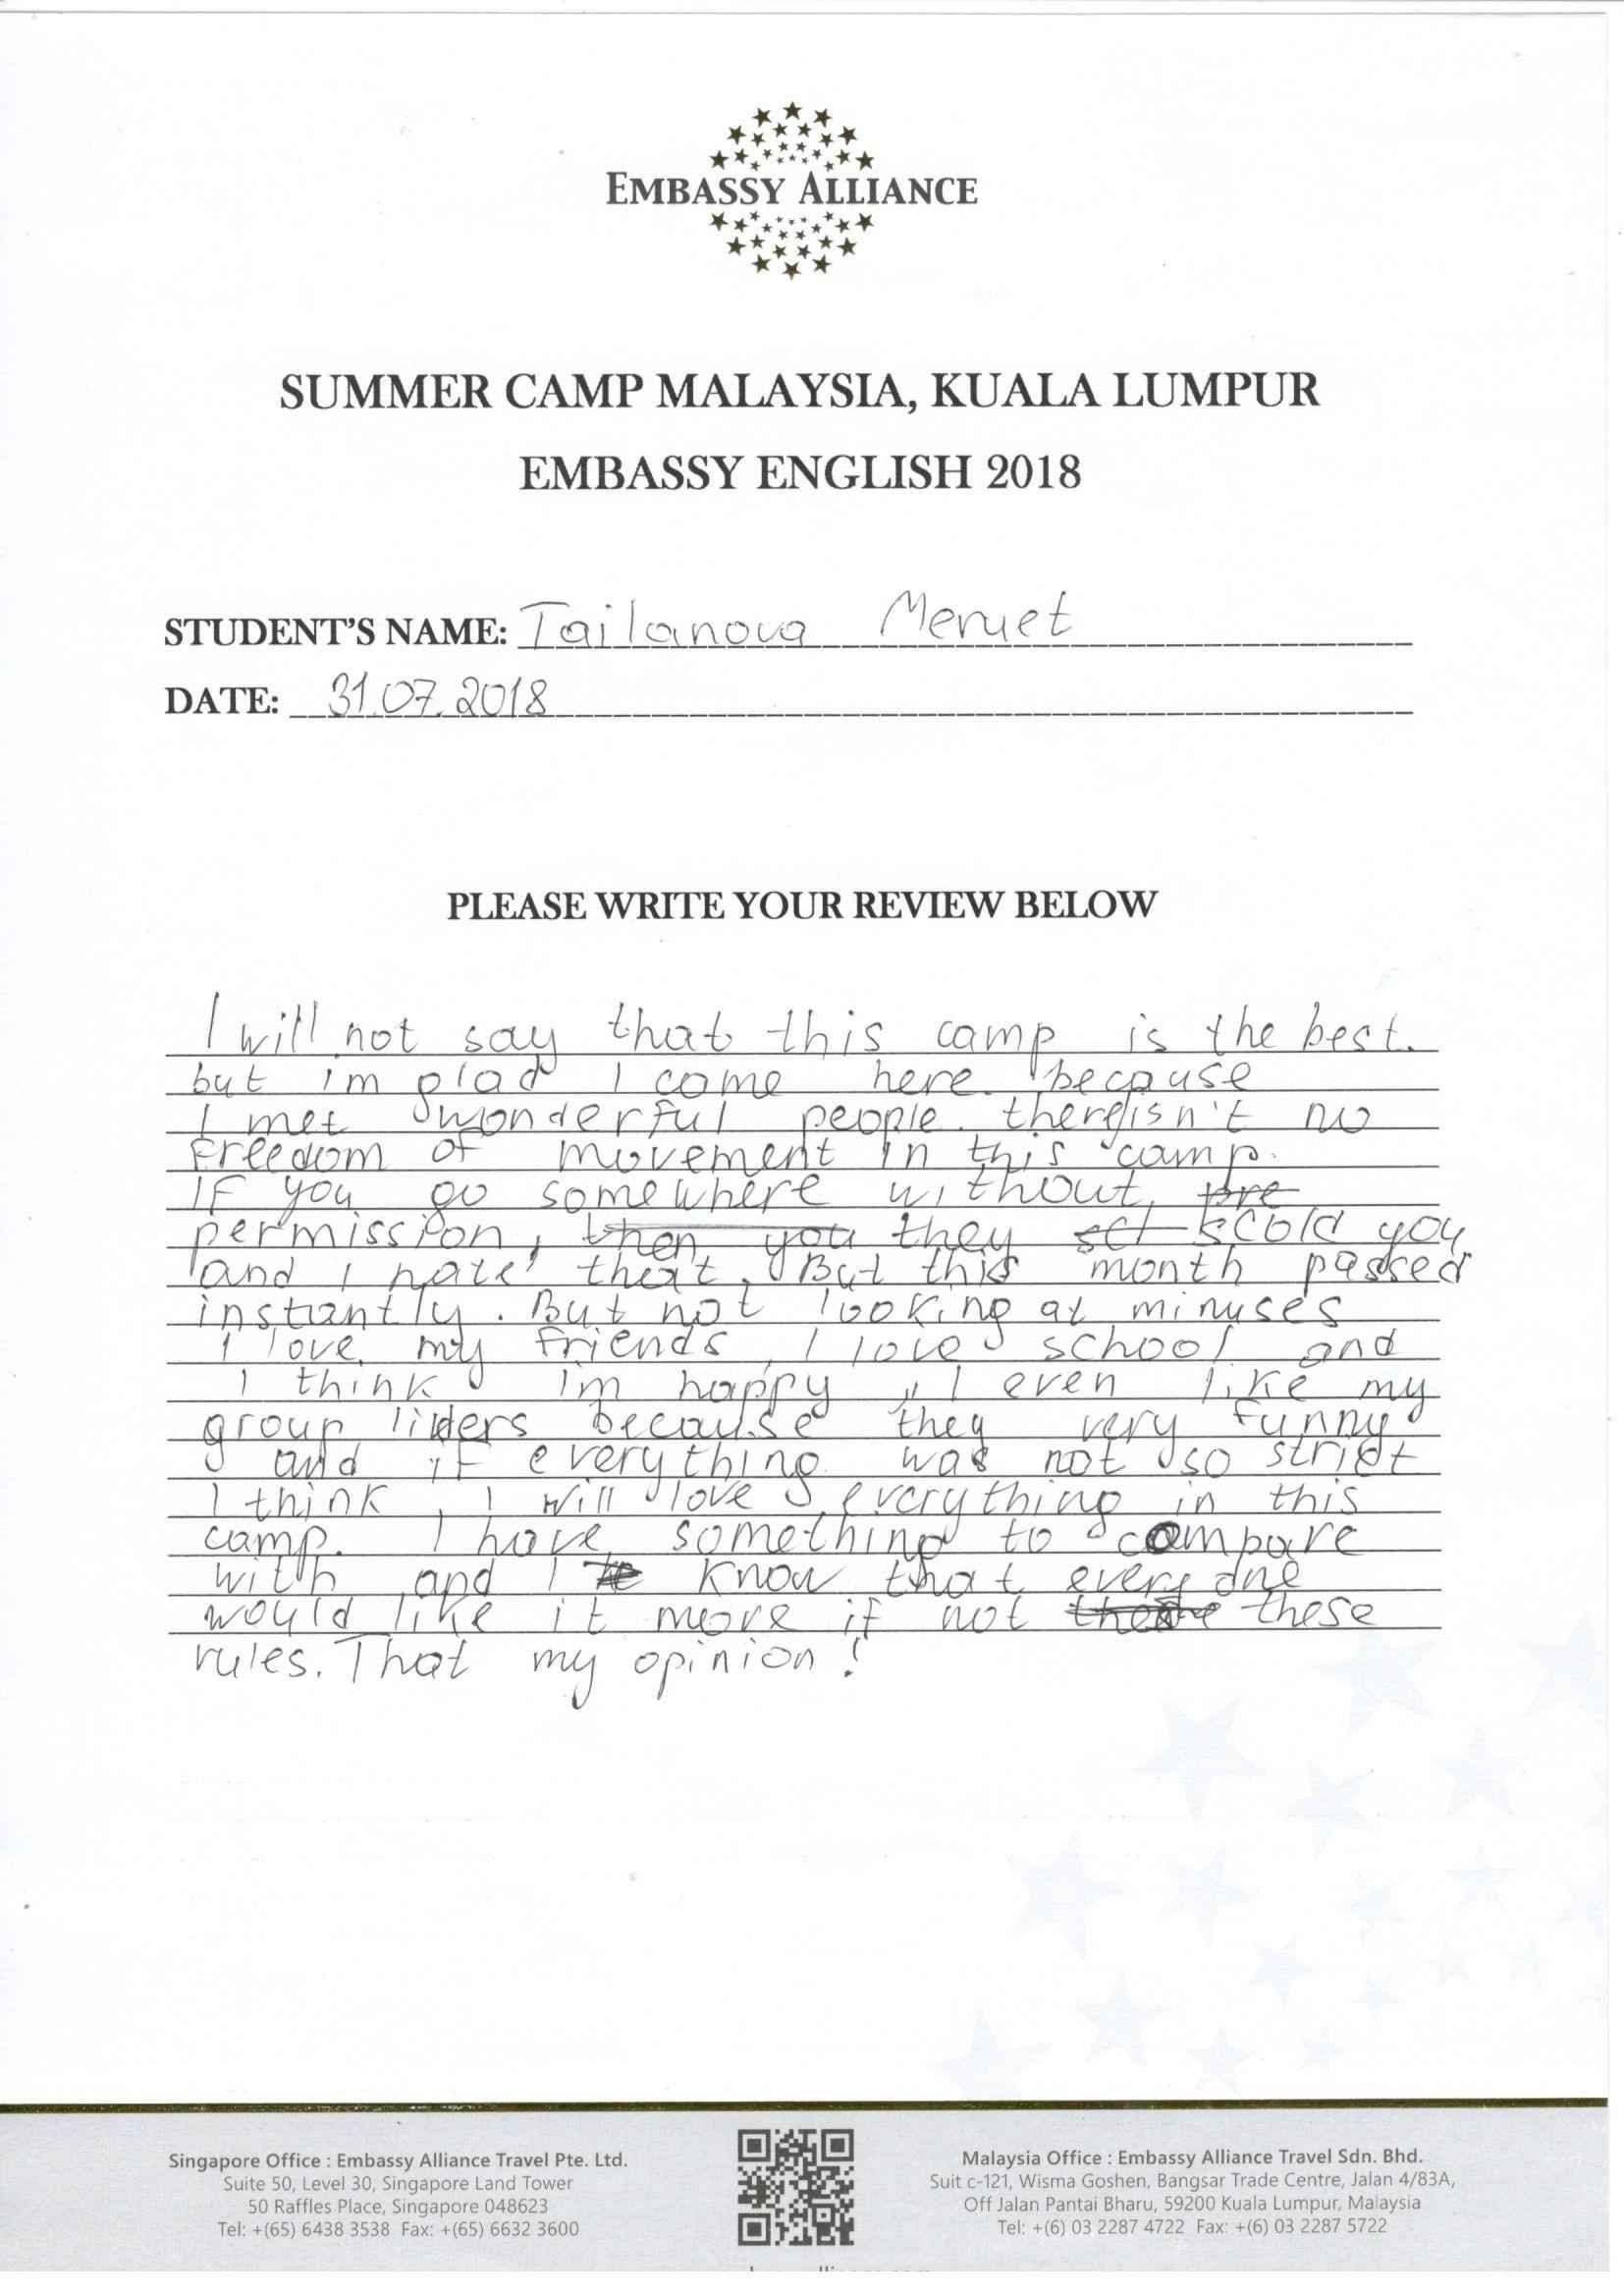 EMBASSY ALLIANCE
SUMMER CAMP MALAYSIA, KUALA LUMPUR
EMBASSY ENGLISH 2018
STUDENT'S NAME: Tailanova Meruet
DATE: 31.07.2018
PLEASE WRITE YOUR REVIEW BELOW
I will not say that this camp is the best.
but im glad I come here because
I met wonderful people. there isn't no
freedom of movement in this camp.
If you go somewhere without pre
permission, then you they sct scold you
and I hate that. But this month passed
instantly. But not looking at minuses
I love my friends, I love school and
I think im happy, I even like my
group liders because they very funny
and if everything was not so strict
I think, I will love everything in this
camp. I have something to compare
with and I know that every one
would like it more if not these
rules. That my opinion!
Singapore Office : Embassy Alliance Travel Pte. Ltd.
Suite 50, Level 30, Singapore Land Tower
50 Raffles Place, Singapore 048623
Tel: +(65) 6438 3538 Fax: +(65) 6632 3600
Malaysia Office : Embassy Alliance Travel Sdn. Bhd.
Suit c-121, Wisma Goshen, Bangsar Trade Centre, Jalan 4/83A,
Off Jalan Pantai Bharu, 59200 Kuala Lumpur, Malaysia
Tel: +(6) 03 2287 4722 Fax: +(6) 03 2287 5722